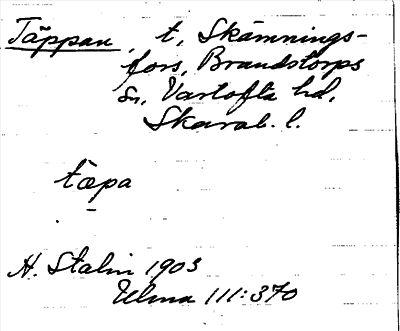 Täppan, t, Skämnings-
fors, Brandstorps
sn, Vartofta hd,
Skarab. l.
täpa
H. Stalin 1903
Ulma 111:370